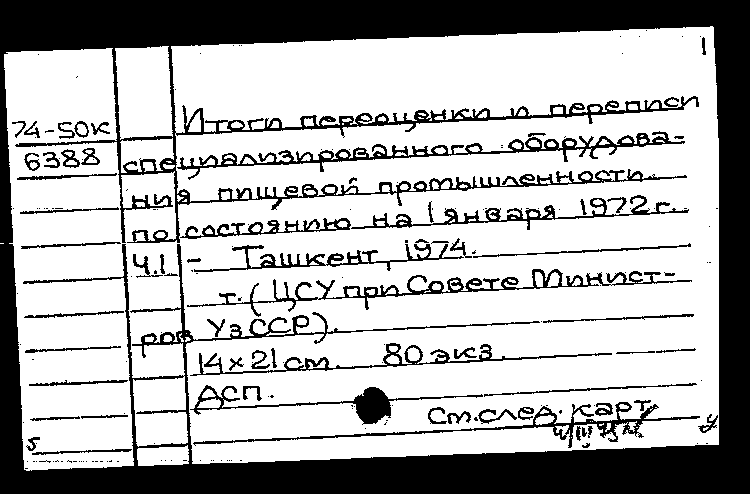 1
74-50К Итоги переоценки и переписи
6388 специализированного оборудова-
ния пищевой промышленности
по состоянию на 1 января 1972 г.
Ч.1 - Ташкент, 1974.
т. (ЦСУ при Совете Минист-
ров УзССР).
14×21 см. 80 экз.
ДСП.
См. след. карт
5